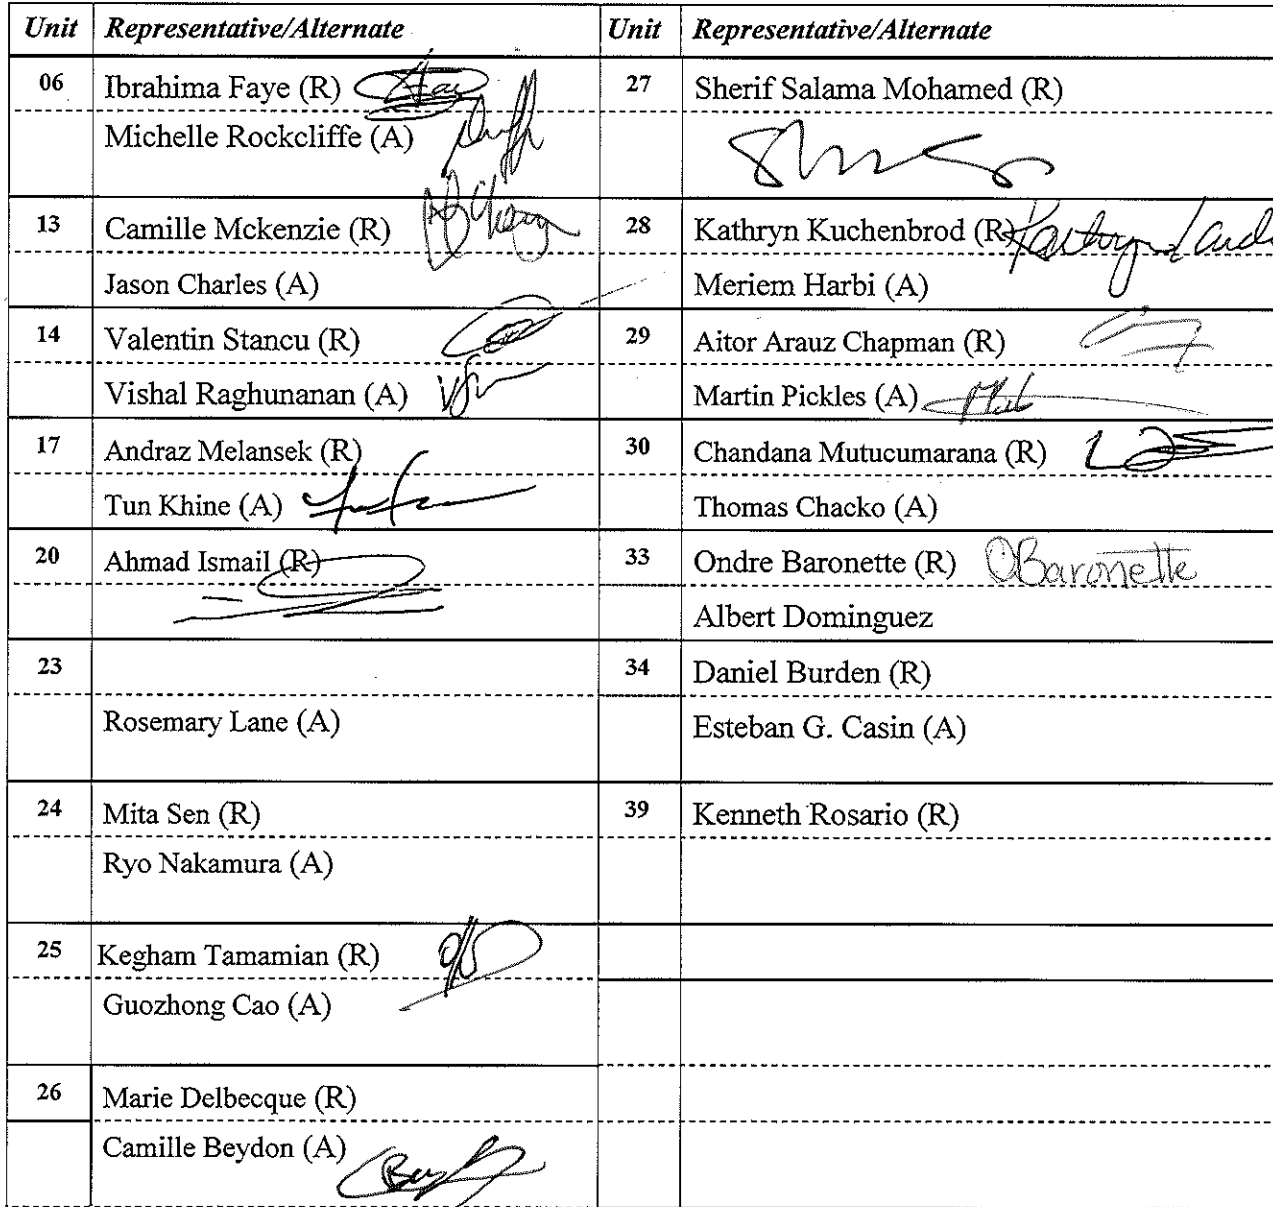 Unit Representative/Alternate Unit Representative/Alternate
06 Ibrahima Faye (R) 27 Sherif Salama Mohamed (R)
Michelle Rockcliffe (A)
13 Camille Mckenzie (R) 28 Kathryn Kuchenbrod (R)
Jason Charles (A) Meriem Harbi (A)
14 Valentin Stancu (R) 29 Aitor Arauz Chapman (R)
Vishal Raghunanan (A) Martin Pickles (A)
17 Andraz Melansek (R) 30 Chandana Mutucumarana (R)
Tun Khine (A) Thomas Chacko (A)
20 Ahmad Ismail (R) 33 Ondre Baronette (R) OBaronette
Albert Dominguez
23 34 Daniel Burden (R)
Rosemary Lane (A) Esteban G. Casin (A)
24 Mita Sen (R) 39 Kenneth Rosario (R)
Ryo Nakamura (A)
25 Kegham Tamamian (R)
Guozhong Cao (A)
26 Marie Delbecque (R)
Camille Beydon (A)